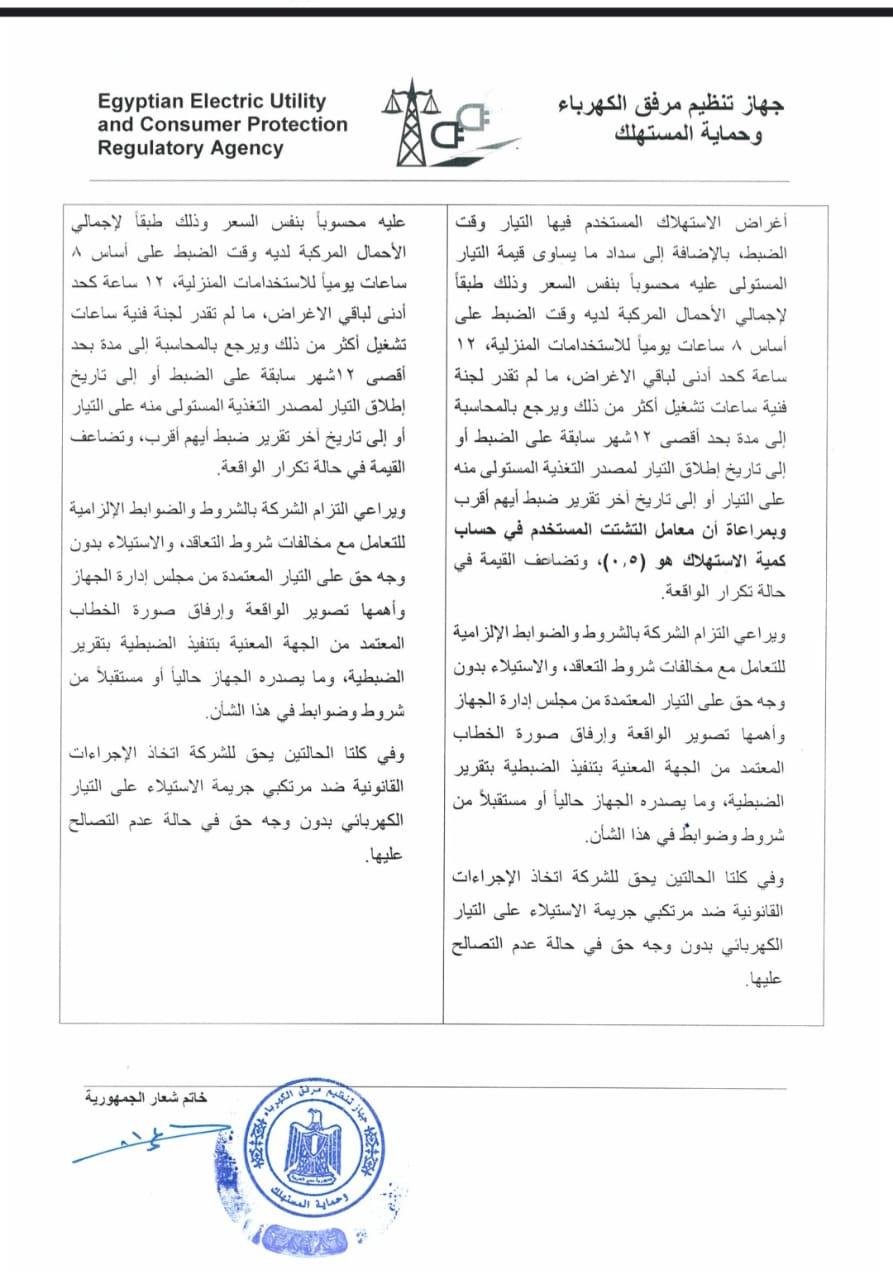 Egyptian Electric Utility
and Consumer Protection
Regulatory Agency
جهاز تنظيم مرفق الكهرباء
وحماية المستهلك
أغراض الاستهلاك المستخدم فيها التيار وقت
الضبط، بالإضافة إلى سداد ما يساوى قيمة التيار
المستولى عليه محسوباً بنفس السعر وذلك طبقاً
لإجمالي الأحمال المركبة لديه وقت الضبط على
أساس ٨ ساعات يومياً للاستخدامات المنزلية، ١٢
ساعة كحد أدنى لباقي الاغراض، ما لم تقدر لجنة
فنية ساعات تشغيل أكثر من ذلك ويرجع بالمحاسبة
إلى مدة بحد أقصى ١٢شهر سابقة على الضبط أو
إلى تاريخ إطلاق التيار لمصدر التغذية المستولى منه
على التيار أو إلى تاريخ آخر تقرير ضبط أيهم أقرب
وبمراعاة أن معامل التشتت المستخدم في حساب
كمية الاستهلاك هو (٠,٥)، وتضاعف القيمة في
حالة تكرار الواقعة.
ويراعي التزام الشركة بالشروط والضوابط الإلزامية
للتعامل مع مخالفات شروط التعاقد، والاستيلاء بدون
وجه حق على التيار المعتمدة من مجلس إدارة الجهاز
وأهمها تصوير الواقعة وإرفاق صورة الخطاب
المعتمد من الجهة المعنية بتنفيذ الضبطية بتقرير
الضبطية، وما يصدره الجهاز حالياً أو مستقبلاً من
شروط وضوابط في هذا الشأن.
وفي كلتا الحالتين يحق للشركة اتخاذ الإجراءات
القانونية ضد مرتكبي جريمة الاستيلاء على التيار
الكهربائي بدون وجه حق في حالة عدم التصالح
عليها.
عليه محسوباً بنفس السعر وذلك طبقاً لإجمالي
الأحمال المركبة لديه وقت الضبط على أساس ٨
ساعات يومياً للاستخدامات المنزلية، ١٢ ساعة كحد
أدنى لباقي الاغراض، ما لم تقدر لجنة فنية ساعات
تشغيل أكثر من ذلك ويرجع بالمحاسبة إلى مدة بحد
أقصى ١٢شهر سابقة على الضبط أو إلى تاريخ
إطلاق التيار لمصدر التغذية المستولى منه على التيار
أو إلى تاريخ آخر تقرير ضبط أيهم أقرب، وتضاعف
القيمة في حالة تكرار الواقعة.
ويراعي التزام الشركة بالشروط والضوابط الإلزامية
للتعامل مع مخالفات شروط التعاقد، والاستيلاء بدون
وجه حق على التيار المعتمدة من مجلس إدارة الجهاز
وأهمها تصوير الواقعة وإرفاق صورة الخطاب
المعتمد من الجهة المعنية بتنفيذ الضبطية بتقرير
الضبطية، وما يصدره الجهاز حالياً أو مستقبلاً من
شروط وضوابط في هذا الشأن.
وفي كلتا الحالتين يحق للشركة اتخاذ الإجراءات
القانونية ضد مرتكبي جريمة الاستيلاء على التيار
الكهربائي بدون وجه حق في حالة عدم التصالح
عليها.
خاتم شعار الجمهورية
جهاز تنظيم مرفق الكهرباء
وحماية المستهلك